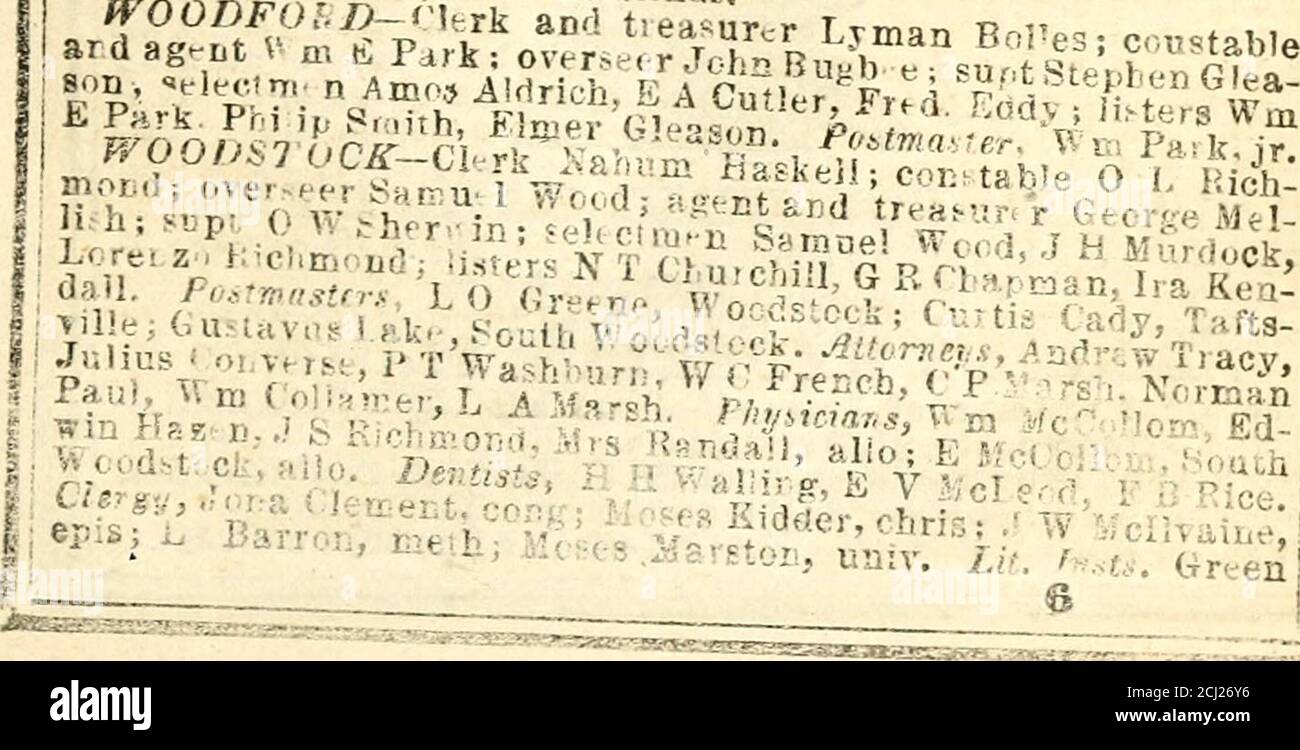 WOODFORD—Clerk and treasurer Lyman Bolles; constable
and agent Wm E Park; overseer John Bugbee; supt Stephen Glea-
son; selectmen Amos Aldrich, E A Cutler, Fred. Eddy; listers Wm
E Park. Philip Smith, Elmer Gleason. Postmaster, Wm Park, jr.
WOODSTOCK—Clerk Nahum Haskell; constable O L Rich-
mond; overseer Samuel Wood; agent and treasurer George Mel-
lish; supt O W Sherwin; selectmen Samuel Wood, J H Murdock,
Lorenzo Richmond; listers N T Churchill, G R Chapman, Ira Ken-
dall. Postmasters, L O Greene, Woodstock; Curtis Cady, Tafts-
ville; Gustavus Lake, South Woodstock. Attorneys, Andrew Tracy,
Julius Converse, P T Washburn, W C French, C P Marsh. Norman
Paul, Wm Collamer, L A Marsh. Physicians, Wm McCollom, Ed-
win Hazen, J S Richmond, Mrs Randall, allo; E McCollom, South
Woodstock, allo. Dentists, H H Walling, E V McLeod, F B Rice.
Clergy, Jona Clement, cong; Moses Kidder, chris; J W McIlvaine,
epis; L Barron, meth; Moses Marston, univ. Lit. Insts. Green
6
alamy
alamy
Image ID: 2CJ26Y6
www.alamy.com